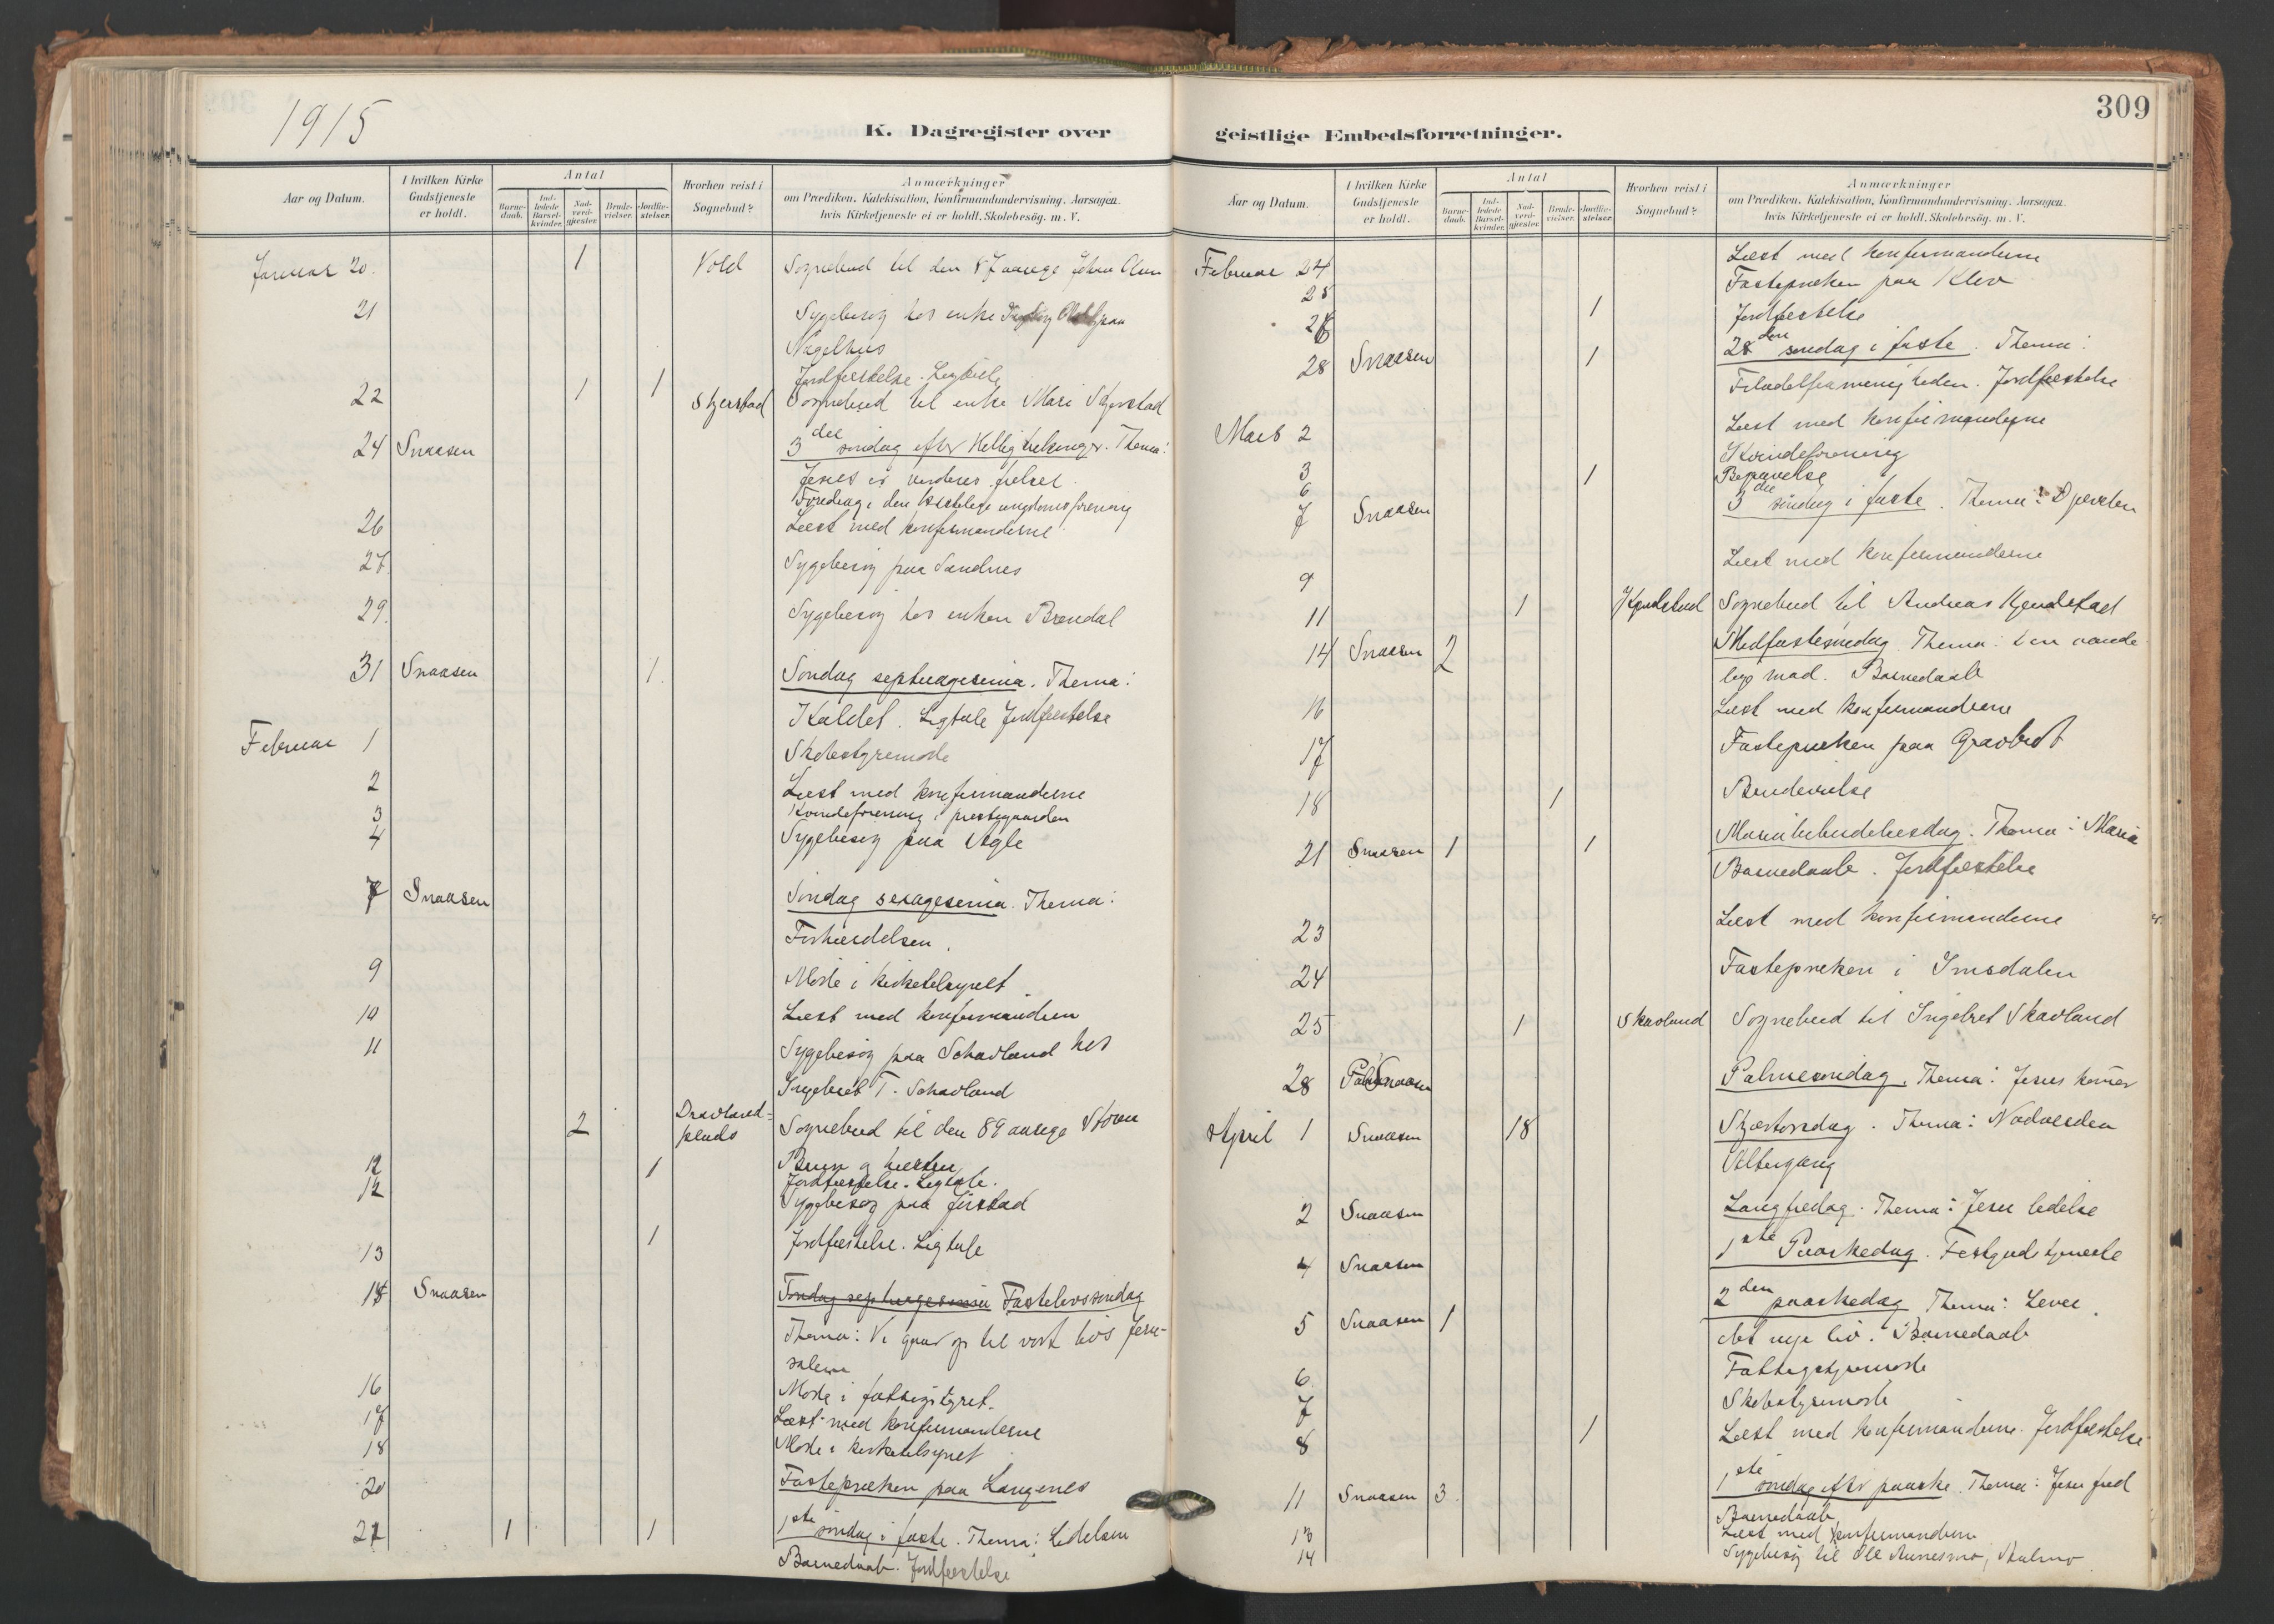 1915
K. Dagregister over
Aar og Datum.
I hvilken Kirke Gudstjeneste er holdt.
Antal
Barnedaab.
Indledede Barselkvinder.
Nadverdgjester.
Brudevielser.
Jordfæstelser.
Hvorhen reist i Sognebud?
Anmærkninger
om Prædiken, Katekisation, Konfirmandundervisning, Aarsagen,
hvis Kirketjeneste ei er holdt, Skolebesög. m. V.
Januar 20. 1 Vold Sognebud til den 87 aarige Johan Olsen
21 Sygebesøg hos enke paa
Nagelhus
Jordfæstelse. Ligtale
22 1 1 Skjerstad Sognebud til enke Mari Skjerstad
24 Snaasen 3die søndag efter Hellig trekonger. Thema:
Jesus er verdens frelser.
Foredrag i den kristelige ungdomsforening
26 Læst med konfirmanderne
27. Sygebesøg paa Sandnes
29. Sygebesøg hos enken Brendal
31 Snaasen 1. Søndag septuagesima. Thema:
Kaldet. Ligtale Jordfæstelse
Februar 1 Skolestyremøde
2 Læst med konfirmanderne
3 Kvindeforening i prestegaarden
4 Sygebesøg paa Agle
7 Snaasen Søndag sexagesima. Thema:
Forhærdelsen.
9 Møde i kirketilsynet
10 Læst med konfirmanderne
11 Sygebesøg paa Schavland hos
Ingebret T. Schavland
2 Dravlandplads Sognebud til den 89 aarige
12 1
Jordfæstelse. Ligtale.
12 Sygebesøg paa Jørstad
13 1 Jordfæstelse. Ligtale
14 Snaasen Søndag septuagesima Fastelavnssøndag
Thema: Vi gaar op til vort livs Jerusalem
16 Møde i fattigstyret.
17 Læst med konfirmanderne
18 Møde i kirketilsynet
20 Fastepræken paa Langenes
21 1 1 1ste søndag i faste. Thema: Lidelsen
Barnedaab. Jordfæstelse
309
geistlige Embedsforretninger.
Aar og Datum.
I hvilken Kirke Gudstjeneste er holdt.
Antal
Barnedaab.
Indledede Barselkvinder.
Nadverdgjester.
Brudevielser.
Jordfæstelser.
Hvorhen reist i Sognebud?
Anmærkninger
om Prædiken, Katekisation, Konfirmandundervisning, Aarsagen,
hvis Kirketjeneste ei er holdt, Skolebesög. m. V.
Februar 24 Læst med konfirmanderne
25 Fastepræken paa Klev
26 1 Jordfæstelse
28 Snaasen 1 2den søndag i faste. Thema:
Filadelfiamenigheden. Jordfæstelse
Mars 2 Læst med konfirmanderne
3 Kvindeforening
6 1 Begravelse
7 Snaasen 3die søndag i faste. Thema: Djævelen
9 Læst med konfirmanderne
11 1 Kjendstad Sognebud til Andreas Kjendstad
14 Snaasen 2 Midfastesøndag. Thema: Den aandelige mad. Barnedaab
16 Læst med konfirmanderne
17 Fastepræken paa Gravbrøt
18 1 Brudevielse
21 Snaasen 1 1 Maria bebudelsesdag. Thema: Maria
Barnedaab. Jordfæstelse
23 Læst med konfirmanderne
24 Fastepræken i Imsdalen
25 1 Skavland Sognebud til Ingebret Skavland
28 Snaasen Palmesøndag. Thema: Jesus kommer
April 1 Snaasen 18 Skjærtorsdag. Thema: Nadverden
Altergang
2 Snaasen Langfredag. Thema: Jesu lidelse
4 Snaasen 1ste Paaskedag. Festgudstjeneste
5 Snaasen 1 2den paaskedag Thema: Lever
det nye liv. Barnedaab
6. Fattigstyremøde
7 Skolestyremøde
8 1 Læst med konfirmanderne. Jordfæstelse
11 Snaasen 3. 1ste søndag efter paaske. Thema: Jesu fred
Barnedaab
13 Læst med konfirmanderne
14 Sygebesøg til Ole